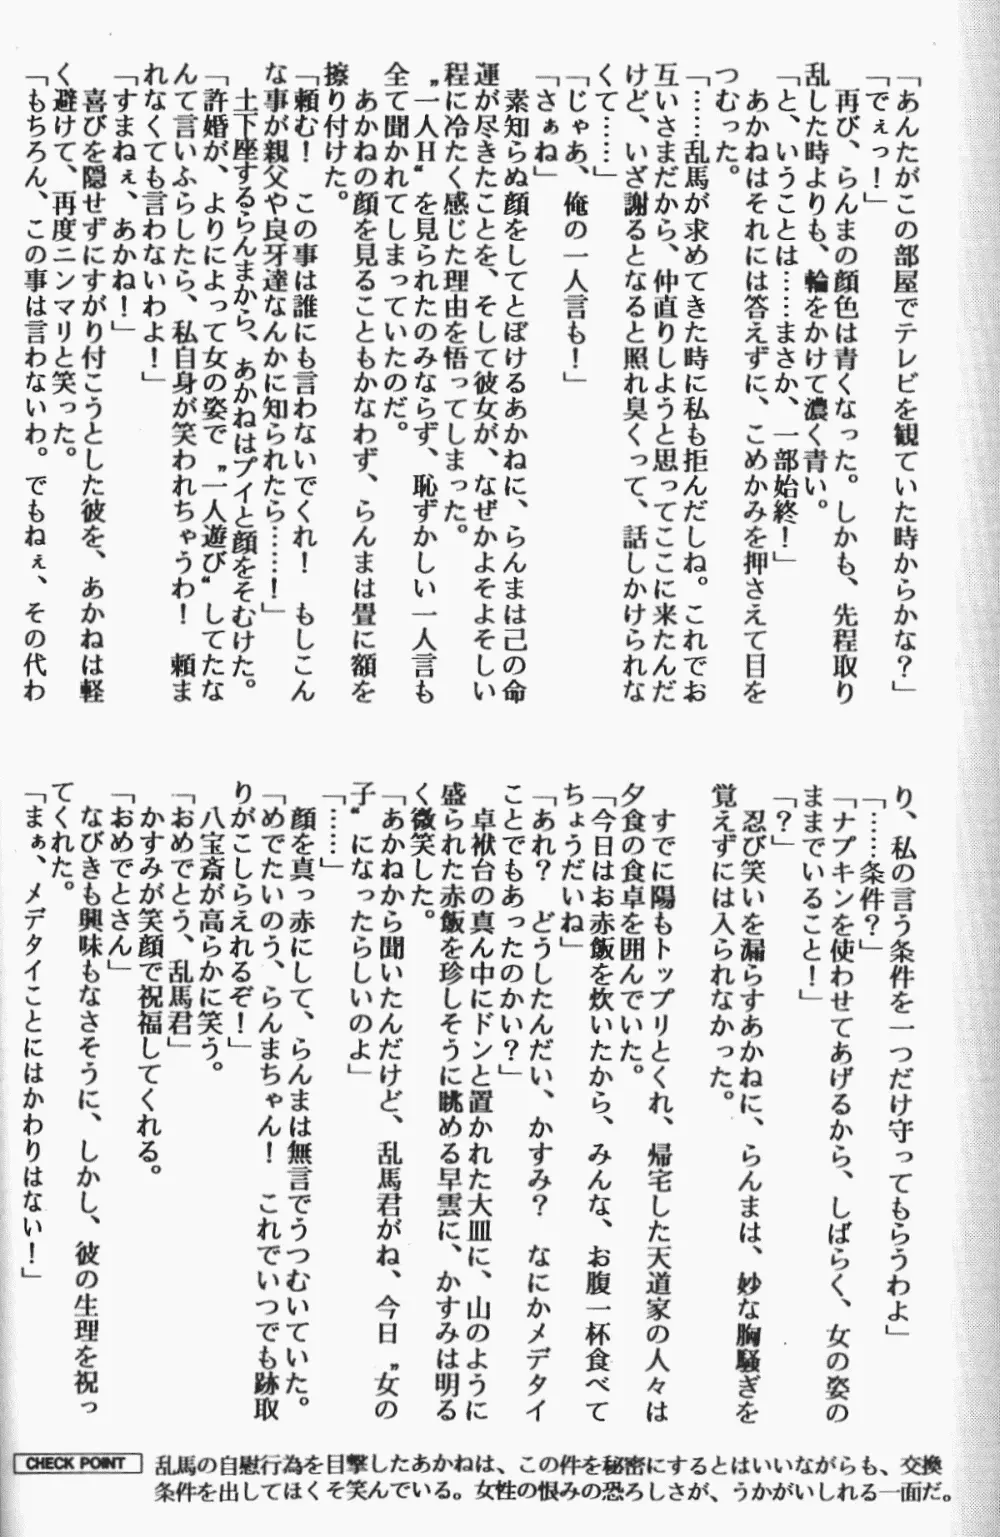 「あんたがこの部屋でテレビを観ていた時からかな？」
「でぇっ！」
再び、らんまの顔色は青くなった。しかも、先程取り
乱した時よりも、輪をかけて濃く青い。
「と、いうことは……まさか、一部始終！」
あかねはそれには答えずに、こめかみを押さえて目を
つむった。
「……乱馬が求めてきた時に私も拒んだしね。これでお
互いさまだから、仲直りしようと思ってここに来たんだ
けど、いざ謝るとなると照れ臭くって、話しかけられな
くて……」
「じゃあ、俺の一人言も！」
「さぁね」
素知らぬ顔をしてとぼけるあかねに、らんまは己の命
運が尽きたことを、そして彼女が、なぜかよそよそしい
程に冷たく感じた理由を悟ってしまった。
〝一人H〟を見られたのみならず、恥ずかしい一人言も
全て聞かれてしまっていたのだ。
あかねの顔を見ることもかなわず、らんまは畳に額を
擦り付けた。
「頼む！　この事は誰にも言わないでくれ！　もしこん
な事が親父や良牙達なんかに知られたら……！」
土下座するらんまから、あかねはプイと顔をそむけた。
「許婚が、よりによって女の姿で〝一人遊び〟してたな
んて言いふらしたら、私自身が笑われちゃうわ！　頼ま
れなくても言わないわよ！」
「すまねぇ、あかね！」
喜びを隠せずにすがり付こうとした彼を、あかねは軽
く避けて、再度ニンマリと笑った。
「もちろん、この事は言わないわ。でもねぇ、その代わ
り、私の言う条件を一つだけ守ってもらうわよ」
「……条件？」
「ナプキンを使わせてあげるから、しばらく、女の姿の
ままでいること！」
「？」
忍び笑いを漏らすあかねに、らんまは、妙な胸騒ぎを
覚えずには入られなかった。
すでに陽もトップリとくれ、帰宅した天道家の人々は
夕食の食卓を囲んでいた。
「今日はお赤飯を炊いたから、みんな、お腹一杯食べて
ちょうだいね」
「あれ？　どうしたんだい、かすみ？　なにかメデタイ
ことでもあったのかい？」
卓袱台の真ん中にドンと置かれた大皿に、山のように
盛られた赤飯を珍しそうに眺める早雲に、かすみは明る
く微笑した。
「あかねから聞いたんだけど、乱馬君がね、今日〝女の
子〟になったらしいのよ」
「……」
顔を真っ赤にして、らんまは無言でうつむいていた。
「めでたいのう、らんまちゃん！　これでいつでも跡取
りがこしらえれるぞ！」
八宝斎が高らかに笑う。
「おめでとう、乱馬君」
かすみが笑顔で祝福してくれる。
「おめでとさん」
なびきも興味もなさそうに、しかし、彼の生理を祝っ
てくれた。
「まぁ、メデタイことにはかわりはない！」
CHECK POINT
乱馬の自慰行為を目撃したあかねは、この件を秘密にするとはいいながらも、交換
条件を出してほくそ笑んでいる。女性の恨みの恐ろしさが、うかがいしれる一面だ。